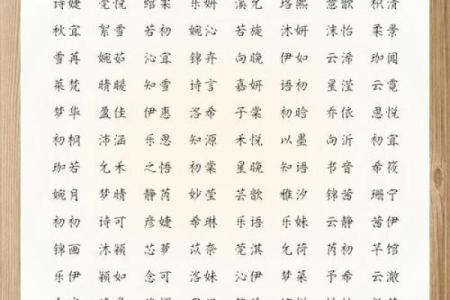 诗婕 莞悦 绾柔 乐妍 溪允 珞熙 意歆 枳清
秋宜 絮雪 若初 沁芸 若旋 沐妍 沫怡 柔景
雪苒 婉茹 沁宜 锦卉 向晚 伊如 云汐 珈闻
莱梵 晴暖 知雪 诗言 嘉妍 语初 星滢 云霓
梦华 盈佳 伊惠 洛希 子棠 初晗 乔依 思悦
初桐 沛涵 乐思 知源 禾悦 以墨 向沂 初宜
珈若 允禾 之悟 初棠 星晚 知语 书音 希筱
婉月 梦晴 静芮 妙莹 芸歆 雅汐 锦茜 珊宁
初初 诗可 彦婕 希琳 乐语 乐姝 云静 茜伊
锦画 沐颖 芯萝 苡奈 莞淇 允荷 芮初 芊馆
乐伊 颖如 念可 洛姝 沁伊 梦莱 予希 云澈